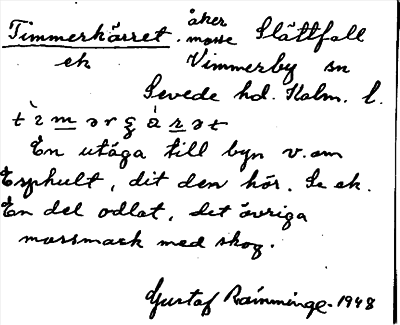 Timmerkärret. åker mosse Slåttfall
ek Vimmerby sn
Sevede hd. Kalm. l.
En utäga till byn v. om
Esphult, dit den hör. Se ek.
En del odlat, det övriga
mossmark med skog.
Gustaf Ramminge. 1948